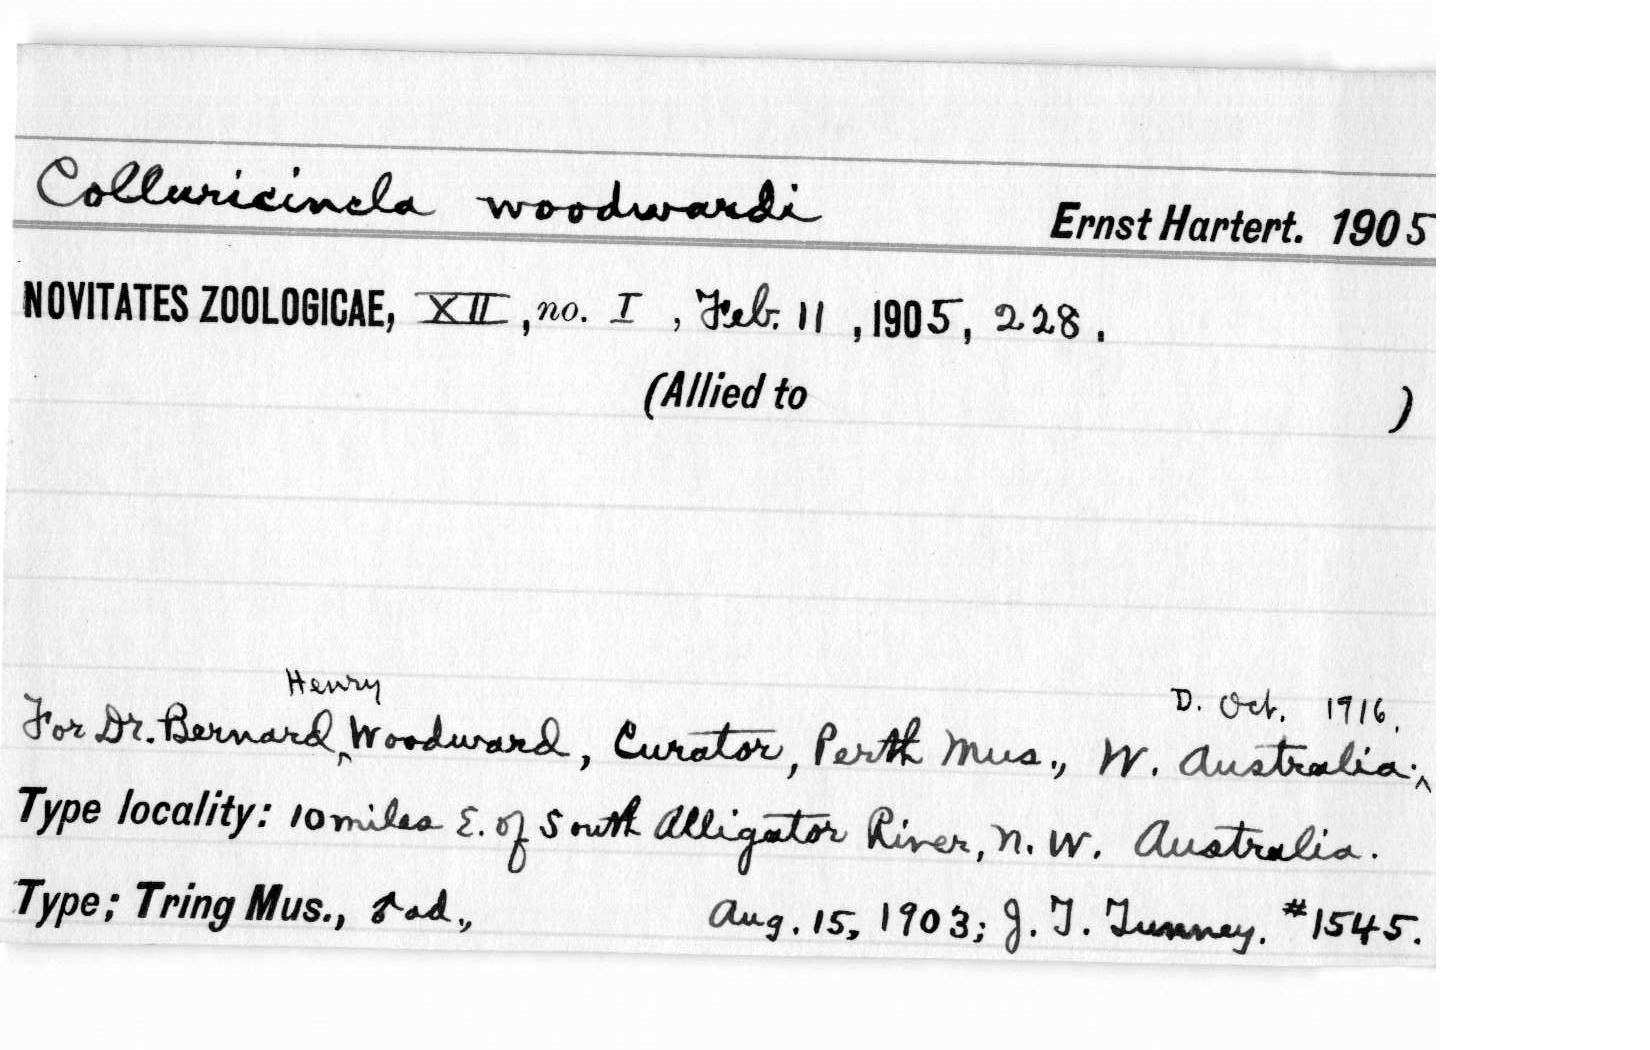 Colluricincla woodwardi Ernst Hartert. 1905
NOVITATES ZOOLOGICAE, XII, no. I, Feb. 11, 1905, 228.
(Allied to )
Henry D. Oct. 1916.
For Dr. Bernard ‸ Woodward, Curator, Perth Mus., W. Australia; ‸
Type locality: 10 miles E. of South Alligator River, N. W. Australia.
Type; Tring Mus., ♂ ad., Aug. 15, 1903; J. T. Tunney. #1545.